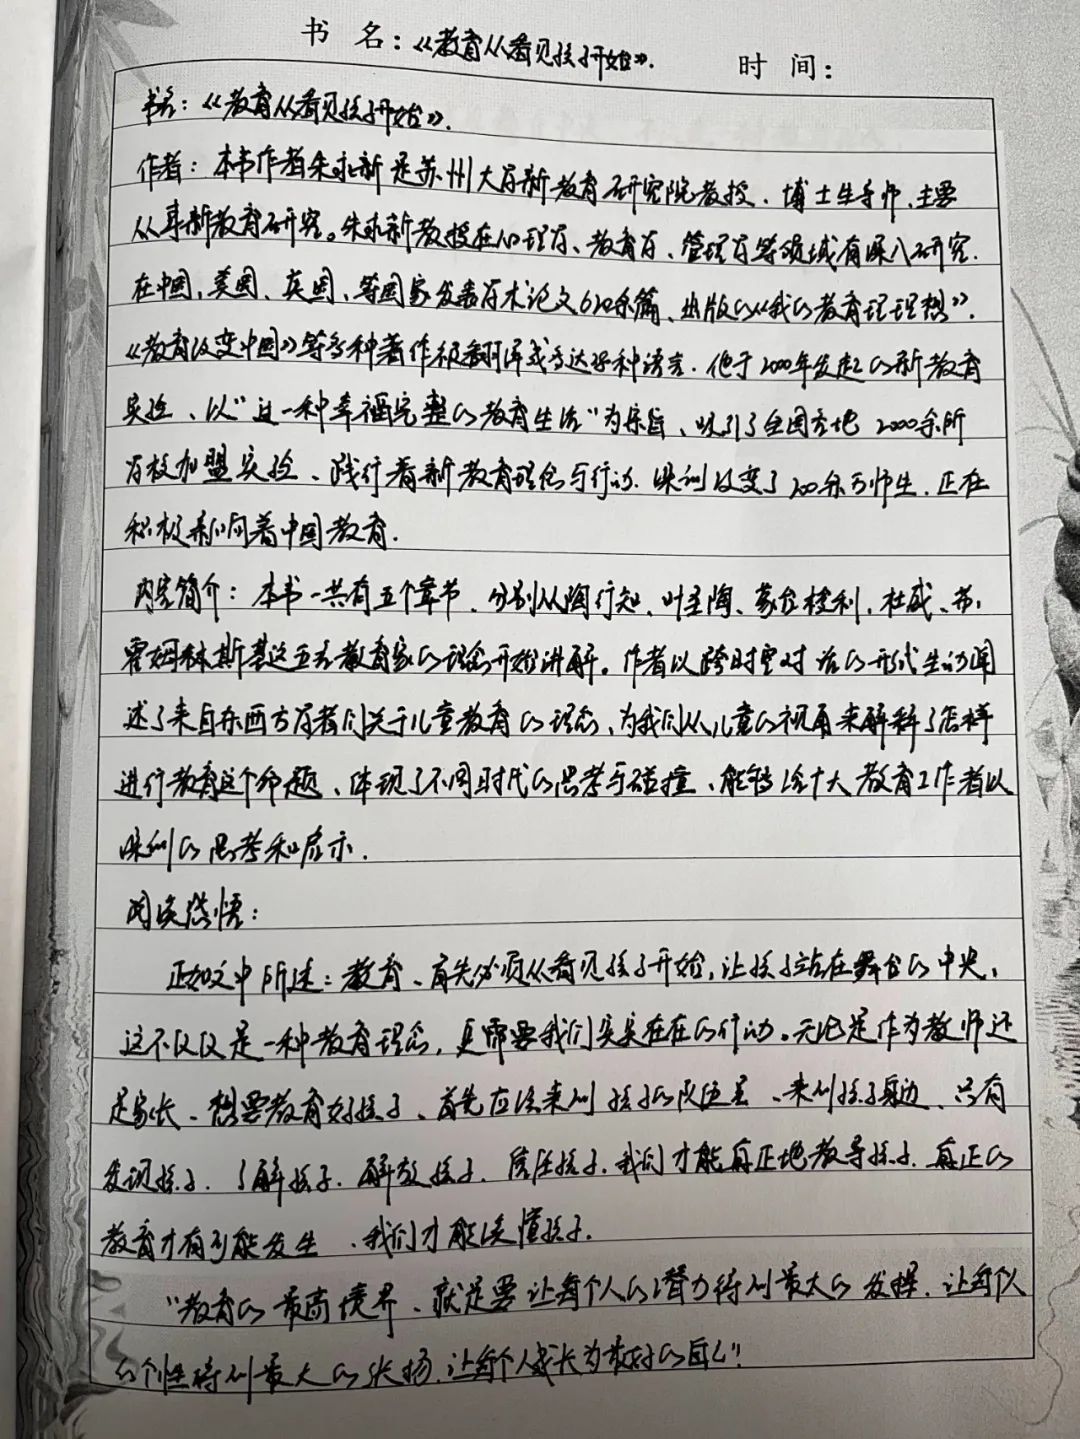 书 名：《教育从看见孩子开始》.
时 间：
书名：《教育从看见孩子开始》.
作者：本书作者朱永新是苏州大学新教育研究院教授、博士生导师，主要
从事新教育研究。朱永新教授在心理学、教育学、管理学等领域有深入研究.
在中国、美国、英国、等国家发表学术论文600余篇、出版的《我的教育理理想》.
《教育改变中国》等多种著作被翻译成多达 种语言.他于2000年发起的新教育
实验、以“过一种幸福完整的教育生活”为宗旨、吸引了全国各地2000余所
学校加盟实验、践行着新教育理念与行动.深刻改变了200余万师生.正在
积极影响着中国教育.
内容简介：本书一共有五个章节、分别从陶行知、叶圣陶、蒙台梭利，杜威、苏.
霍姆林斯基这五名教育家的理念开始讲解。作者以跨时空对话的形式生动阐
述了来自东西方学者们关于儿童教育的理念、为我们从儿童的视角来解释了怎样
进行教育这个命题、体现了不同时代的思考与碰撞、能够给广大教育工作者以
深刻的思考和启示.
阅读感悟：
正如文中所述：教育、首先必须从看见孩子开始，让孩子站在舞台的中央，
这不仅仅是一种教育理念，更需要我们实实在在的行动。无论是作为教师还
是家长、想要教育好孩子、首先应该来到孩子的队伍里、来到孩子身边、只有
发现孩子.了解孩子.解放孩子.信任孩子.我们才能真正地教导孩子.真正的
教育才有可能发生、我们才能读懂孩子.
“教育的最高境界、就是要让每个人的潜力得到最大的发挥.让每个人
的个性得到最大的张扬.让每个人成长为最好的自己”!